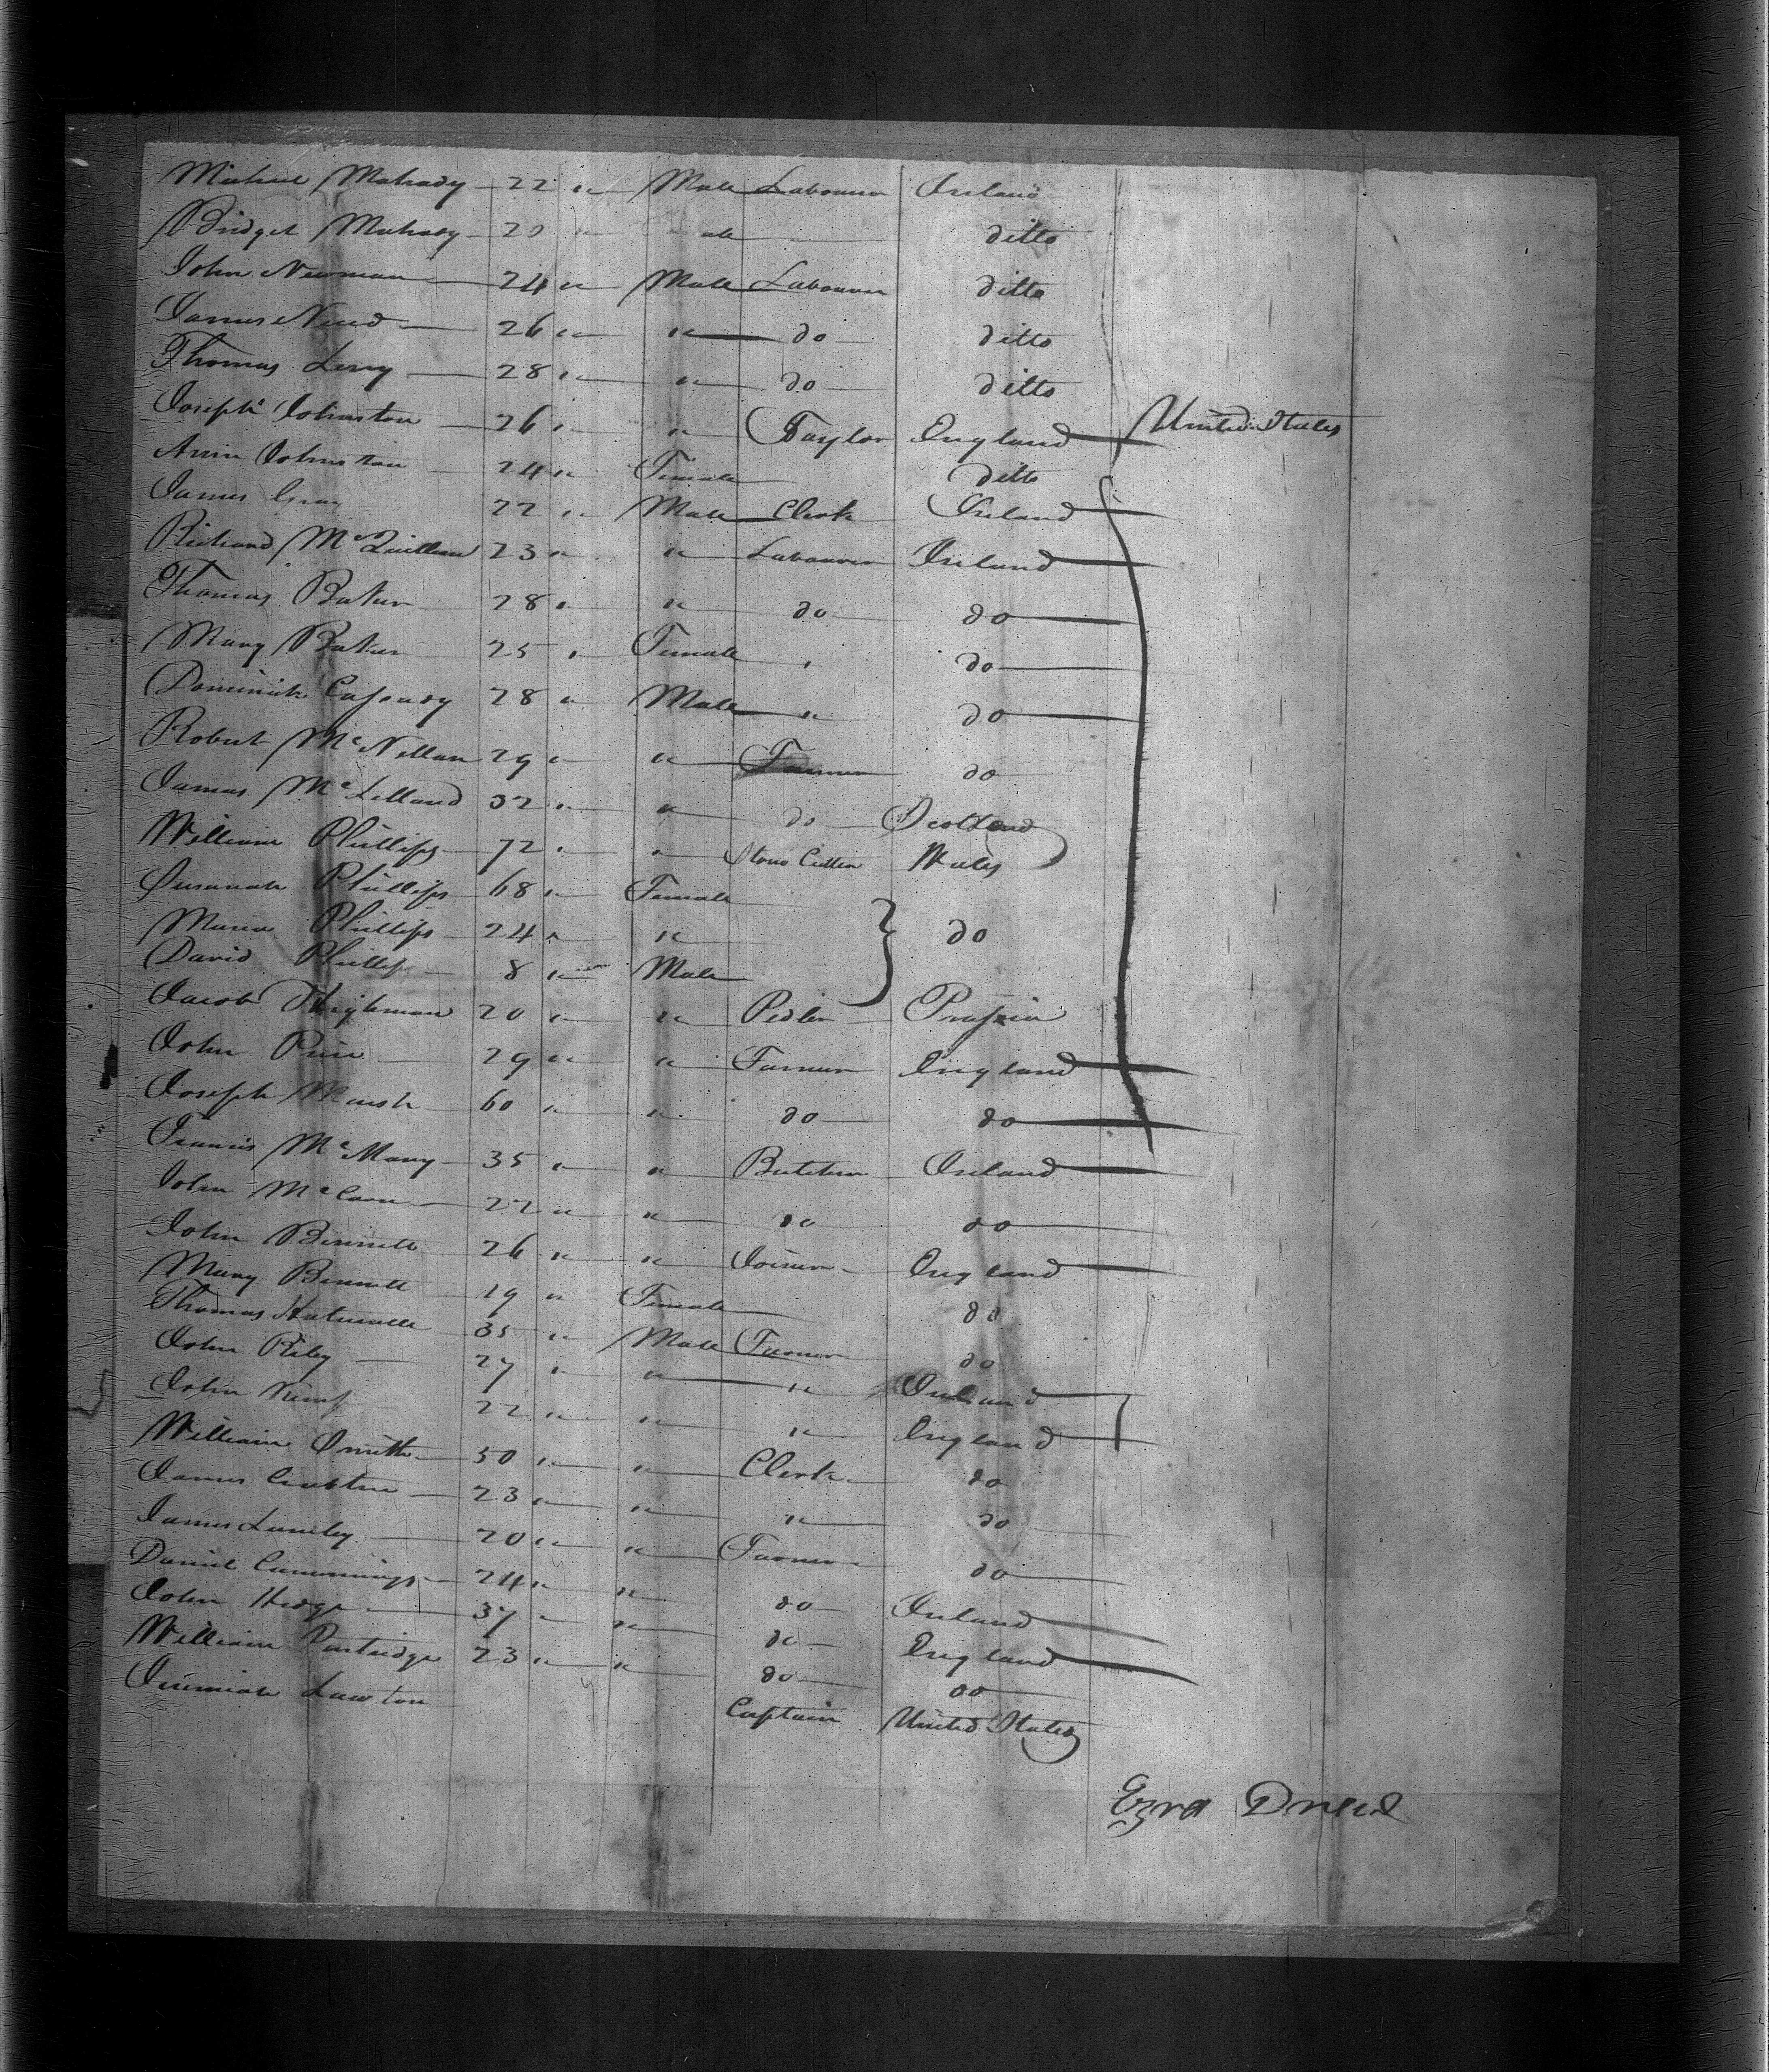 Michael Mahady 22 " Male Labourer Ireland
Bridget Mahady 20 " ditto
John Newman 24 " Male Labourer ditto
James 26 " " do ditto
Thomas 28 " " do ditto
Joseph Johnston 26 " " Taylor England United States
Ann Johnston 24 " Female ditto
James Gray 22 " Male Clerk Ireland
Richard McQuillan 23 " " Labourer Ireland
Thomas Baker 28 " " do do
Mary Baker 25 " Female " do
Dominick Cassady 28 " Male " do
Robert McNellan 29 " " Farmer do
James McLelland 32 " " do Scotland
William Phillips 72 " " Stone Cutter Wales
Susanah Phillips 68 " Female
Maria Phillips 24 " " do
David Phillips 8 " Male
Jacob 20 " " Pedler Prussia
John 29 " " Farmer England
Joseph Marsh 60 " " do do
Francis McMany 35 " " Butcher Ireland
John McCann 22 " " do do
John Bennett 26 " " Joiner England
Mary Bennett 19 " Female do
Thomas 35 " Male Farmer do
John Riley 27 " " " Ireland
John Kemp 22 " " " England
William Smith 50 " " Clerk do
James Crabtree 23 " " " do
James 20 " " Farmer do
Daniel Cummings 24 " " do Ireland
John Hedge 37 " " do England
William Partridge 23 " " do do
Jeremiah Lawton Captain United States
Ezra